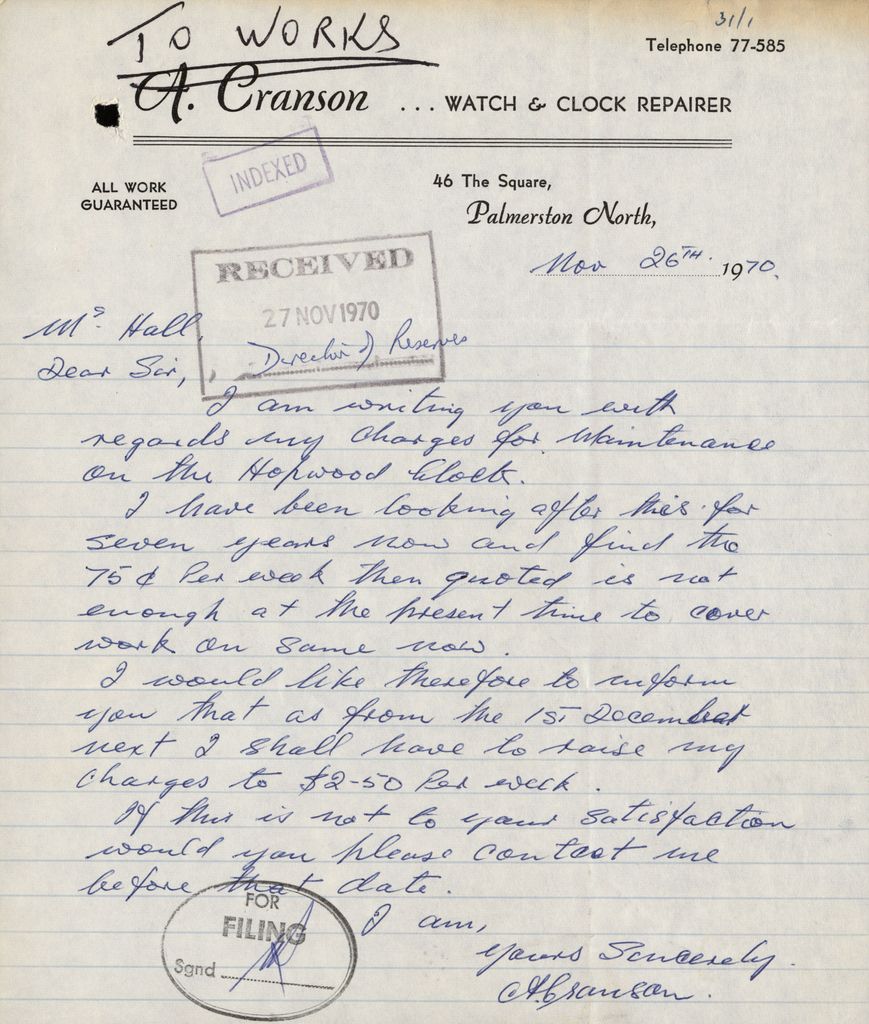 31/1
TO WORKS
Telephone 77-585
A. Cranson ... WATCH & CLOCK REPAIRER
INDEXED
ALL WORK
GUARANTEED
46 The Square,
Palmerston North,
Nov 26TH 1970.
RECEIVED
27 NOV 1970
Director of Reserves
Mr Hall,
Dear Sir,
I am writing you with
regards my Charges for Maintenance
on the Hopwood Clock.
I have been looking after this for
seven years now and find the
75¢ Per week then quoted is not
enough at the present time to cover
work on same now.
I would like therefore to inform
you that as from the 1ST December
next I shall have to raise my
Charges to $2-50 Per week.
If this is not to your satisfaction
would you please contact me
before that date.
I am,
Yours Sincerely.
A Cranson.
FOR
FILING
Sgnd